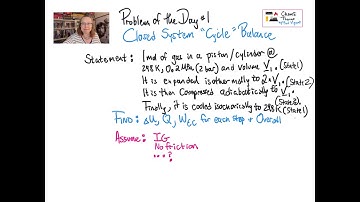 Problem of the Day #1
Closed System "Cycle" Balance
Statement: 1 mol of gas in a piston/cylinder @
298K, 0.2 MPa (2 bar) and volume V₁. (State 1)
It is expanded isothermally to 2·V₁. (State 2)
It is then compressed adiabatically to V₁.
(State 3)
Finally, it is cooled isochorically to 298K (State 1)
FIND: ΔU, Q, WEC for each step + Overall
Assume: IG
No friction
...?